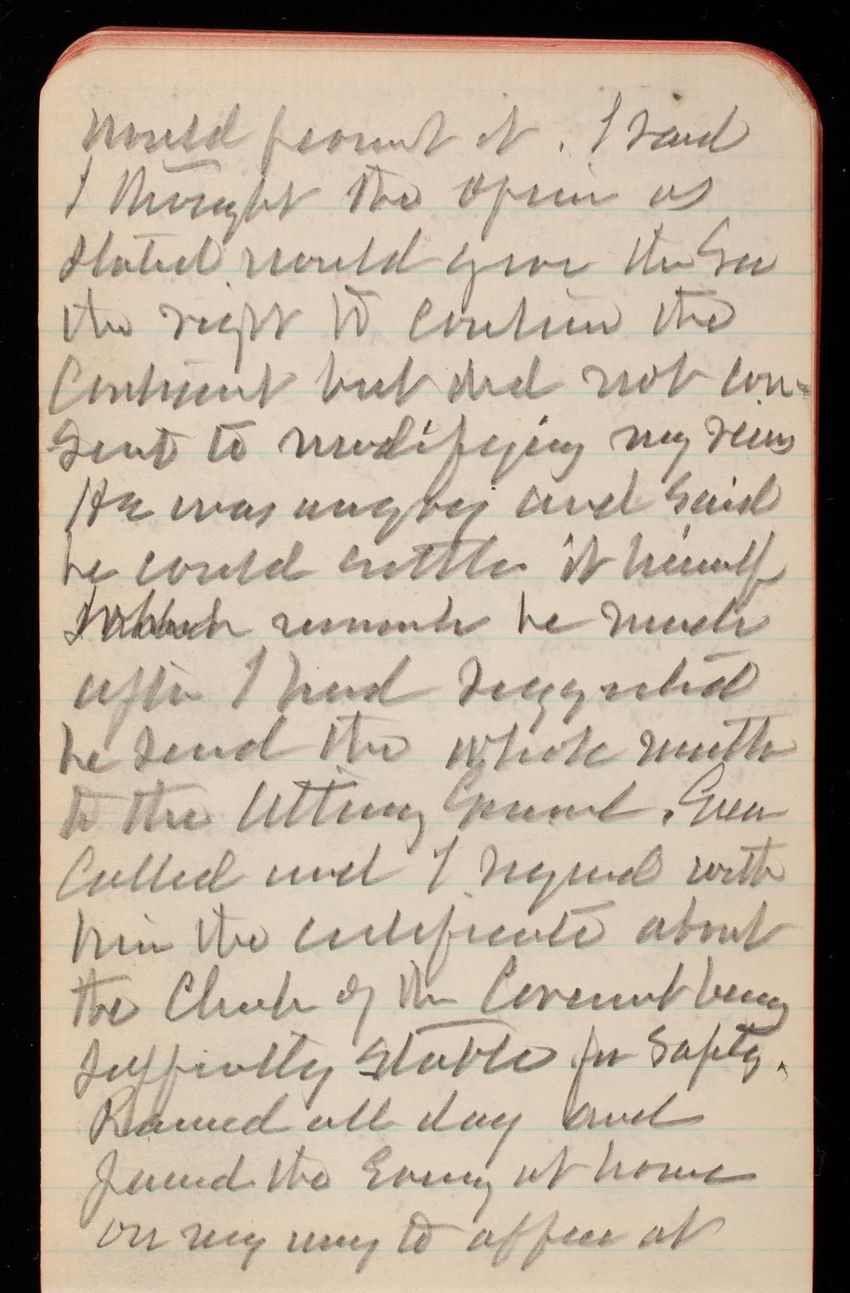 would permit it. I said
I thought the opin as
stated would give the Sec
the right to continue the
Continent but did not con-
sent to modifying my views
He was angry and said
he could settle it himself
which remark he made
after I had suggested
he send the whole matter
to the Attorney General. Green
Called and I signed with
him the certificate about
the Church of the Covenant being
sufficiently stable for safety.
Rained all day and
found the Genl at home
on my way to office at